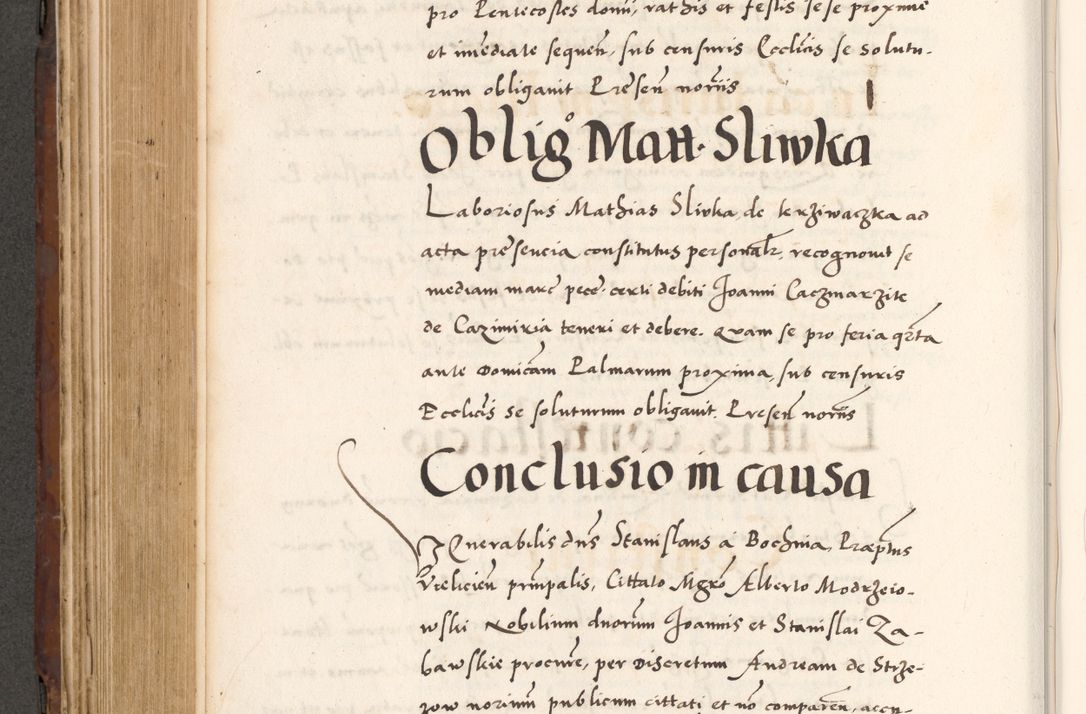 pro Pentecostes domi, rathis et festis sese proxime
et imediate sequen, sub censuris Ecclicis se solutu-
rum obligauit Presen noriis
Oblig° Matt. Sliwka
Laboriosus Mathias Slivka de krziwaczka ad
acta presencia constitutus personalr, recognouit se
mediam marc pecc certi debiti Joanni Caczmarzite
de Cazimiria teneri et debere. Quam se pro feria qrta
ante Domicam Palmarum proxima, sub censuris
Ecclicis se soluturum obligauit. Presen noriis
Conclusio in causa
Venerabilis dns Stanislaus a Bochnia, Præptus
Vielicien principalis, Cittato Mgro Alberto Modrzeio-
wski Nobilium duorum Joannis et Stanislai Za-
bawskie procure, per Discretum Andream de Strze-
zow norium publicum cittati et no comparen, accu-